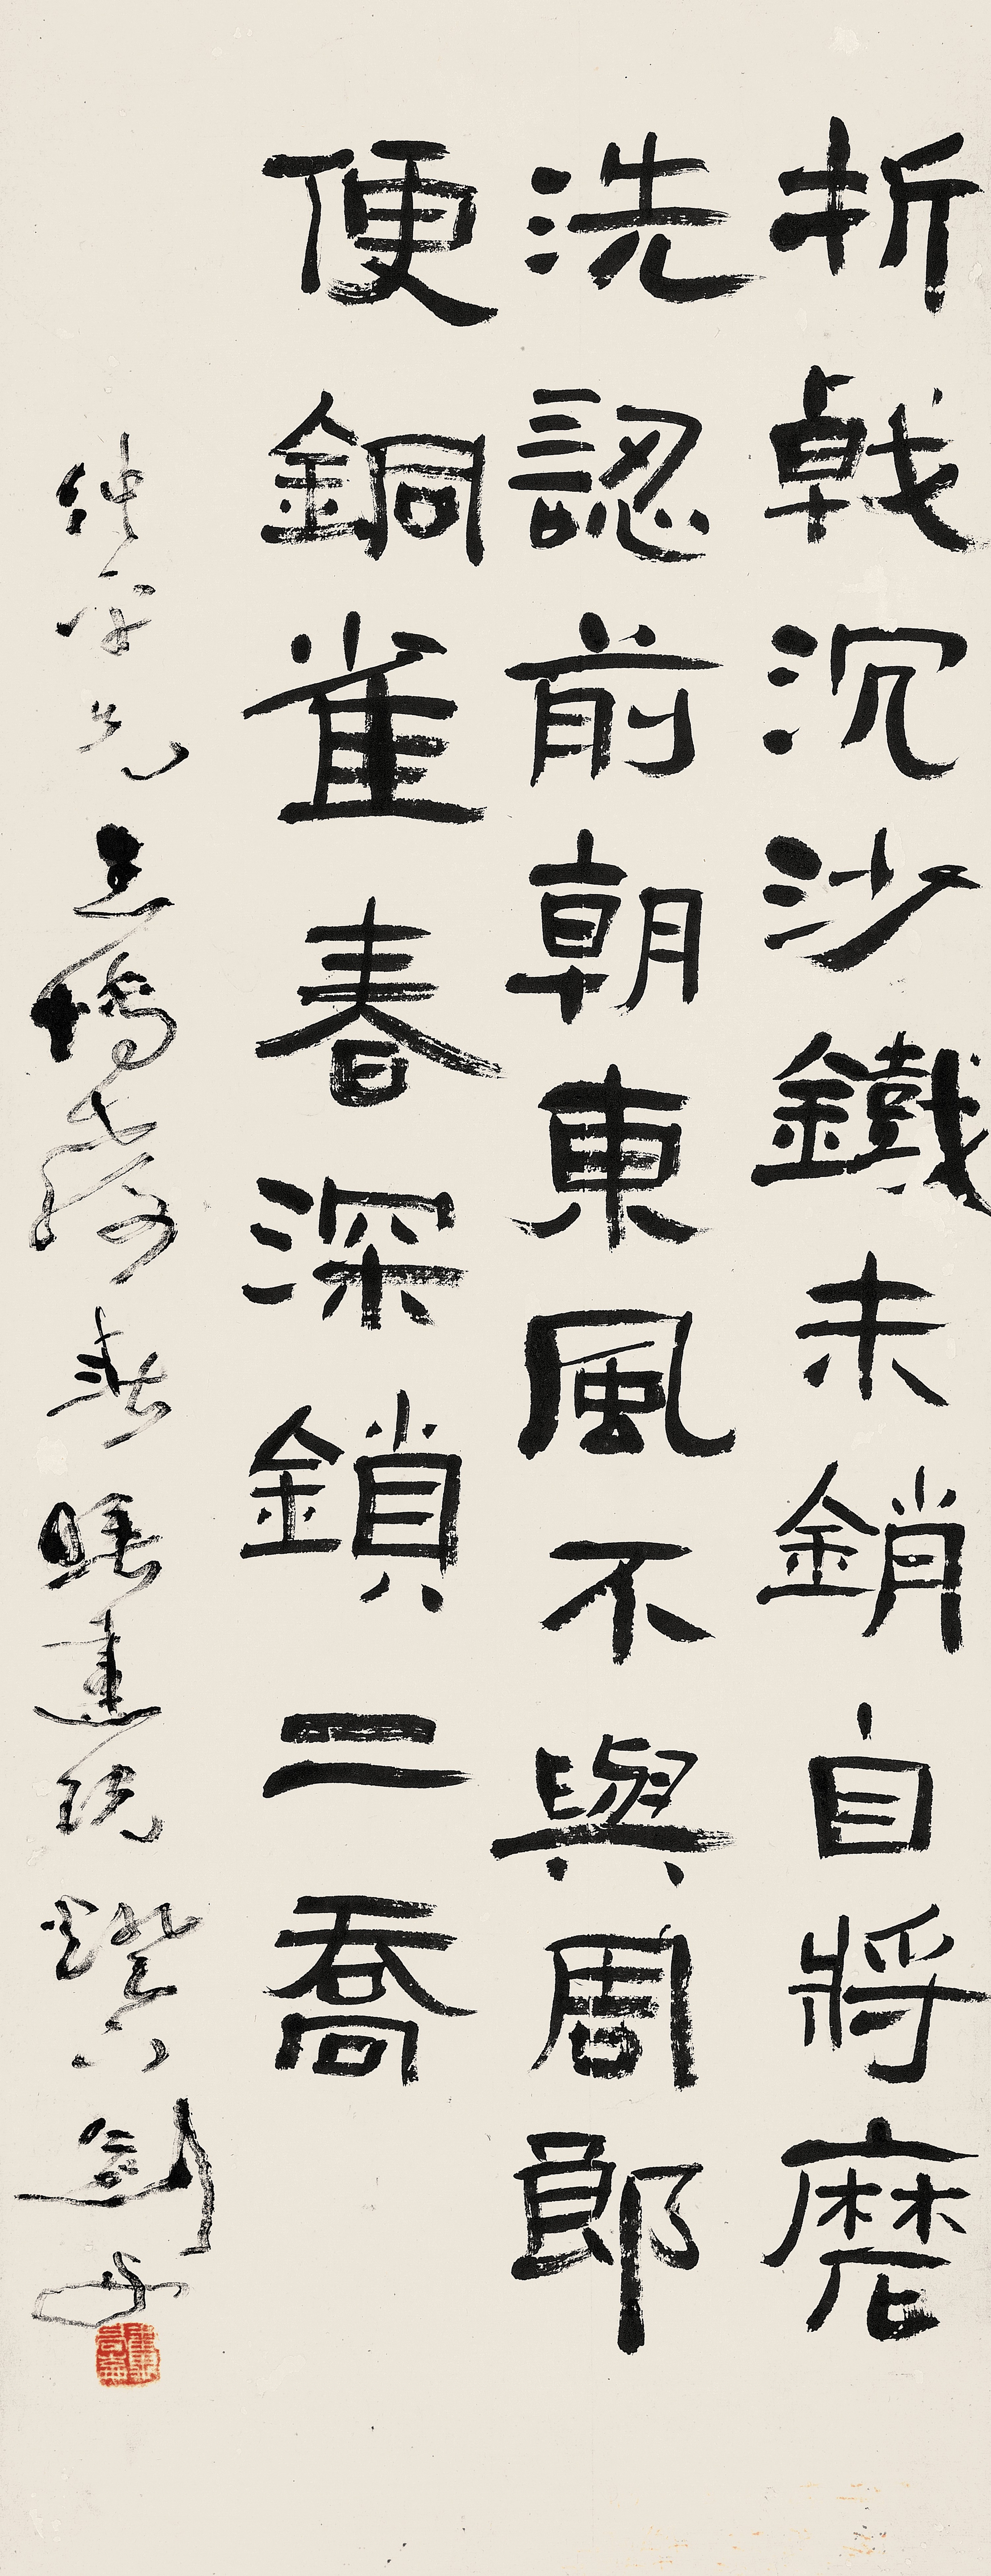 折戟沉沙鐵未銷自將磨
洗認前朝東風不與周郎
便銅雀春深鎖二喬
仲平先生